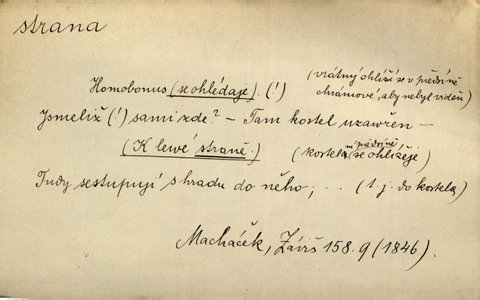 strana
Homobonus (se ohlédaje). (!) (vrátný ohlíží se v předsíně
chrámové, aby nebyl viděn)
Jsmeliž (!) sami zde? – Tam kostel uzawřen –
(K lewé straně.) (kostela, se ohlížeje)
Tudy sestupují s hradu do něho; .. (t. j. do kostela)
Macháček, Záviš 158. 9 (1846).